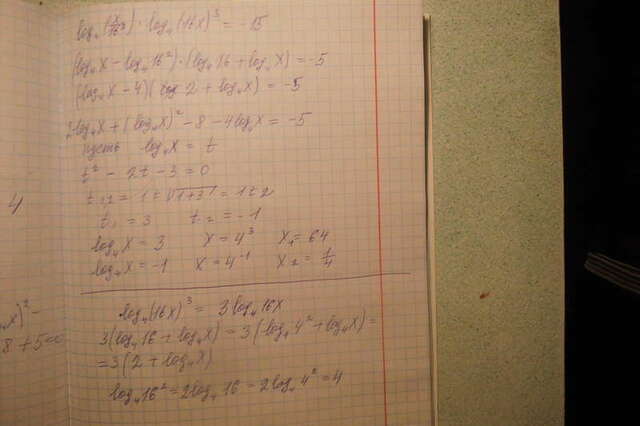 log₄(x/16²) · log₄(16x)³ = -15
(log₄x - log₄16²) · (log₄16 + log₄x) = -5
(log₄x - 4)( 2 + log₄x) = -5
2log₄x + (log₄x)² - 8 - 4log₄x = -5
пусть log₄x = t
t² - 2t - 3 = 0
t₁,₂ = 1 ± √1+3 = 1±2
t₁ = 3 t₂ = -1
log₄x = 3 x = 4³ x₁ = 64
log₄x = -1 x = 4⁻¹ x₂ = 1/4
log₄(16x)³ = 3log₄16x
3(log₄16 + log₄x) = 3(log₄4² + log₄x) =
= 3(2 + log₄x)
log₄16² = 2log₄16 = 2log₄4² = 4
4
x)² -
8 + 5 =